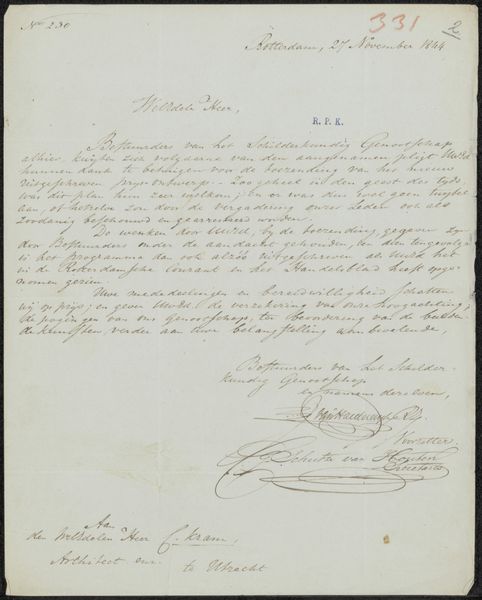 No 230
331
2
Rotterdam, 27 November 1844
WelEdele Heer,
R. P. K.
Bestuurders van het Schilderkundig Genootschap
alhier, kwijten zich volgaarne van den aangenamen pligt UwEd.
hunnen dank te betuigen voor de toezending van het nieuw
uitgeschreven prijs-ontwerp. Zoo geheel in den geest des tijds,
was dit plan hun zeer welkom, en er was dan ook geen twijfel
aan, of hetzelve zou door de vergadering onzer Leden ook als
zoodanig beschouwd en gearresteerd worden.
De wenken door UwEd. bij de toezending, gegeven zijn
door Bestuurders onder de aandacht gehouden, ten dien tengevolge
is het programma dan ook alzoo uitgeschreven als UwEd. het
in de Rotterdamsche Courant en het Handelsblad heeft opge-
nomen gezien.
Uwe mededeelingen en bereidwilligheid schatten
wij op prijs, en geven UwEd. de verzekering van onze hoogachting,
de pogingen van ons Genootschap, ter bevordering van de beelden-
de kunsten, verder aan uwe belangstelling aanbevelende,
Bestuurders van het Schilder-
kundig Genootschap
in naam derzelven,
Voorzitter
Schutze van Houten
Secretaris
Aan
den WelEdelen Heer C. Kram,
Architect enz. te Utrecht